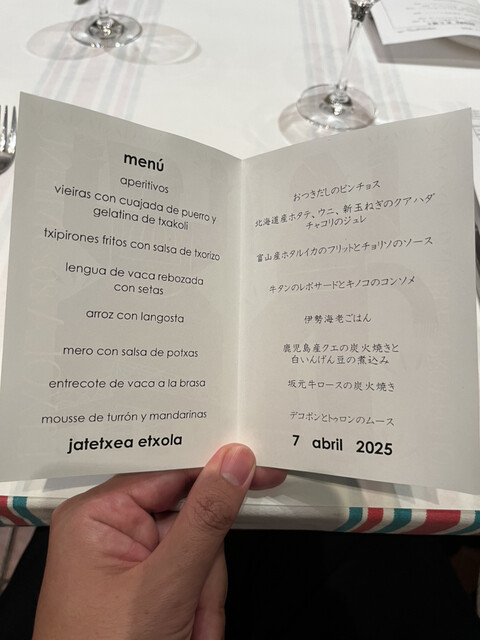 menú
aperitivos
vieiras con cuajada de puerro y
gelatina de txakoli
txipirones fritos con salsa de txorizo
lengua de vaca rebozada
con setas
arroz con langosta
mero con salsa de potxas
entrecote de vaca a la brasa
mousse de turrón y mandarinas
jatetxea etxola
おつきだしのピンチョス
北海道産ホタテ、ウニ、新玉ねぎのクアハダ
チャコリのジュレ
富山産ホタルイカのフリットとチョリソのソース
牛タンのレボサードとキノコのコンソメ
伊勢海老ごはん
鹿児島産クエの炭火焼きと
白いんげん豆の煮込み
坂元牛ロースの炭火焼き
デコポンとトゥロンのムース
7 abril 2025